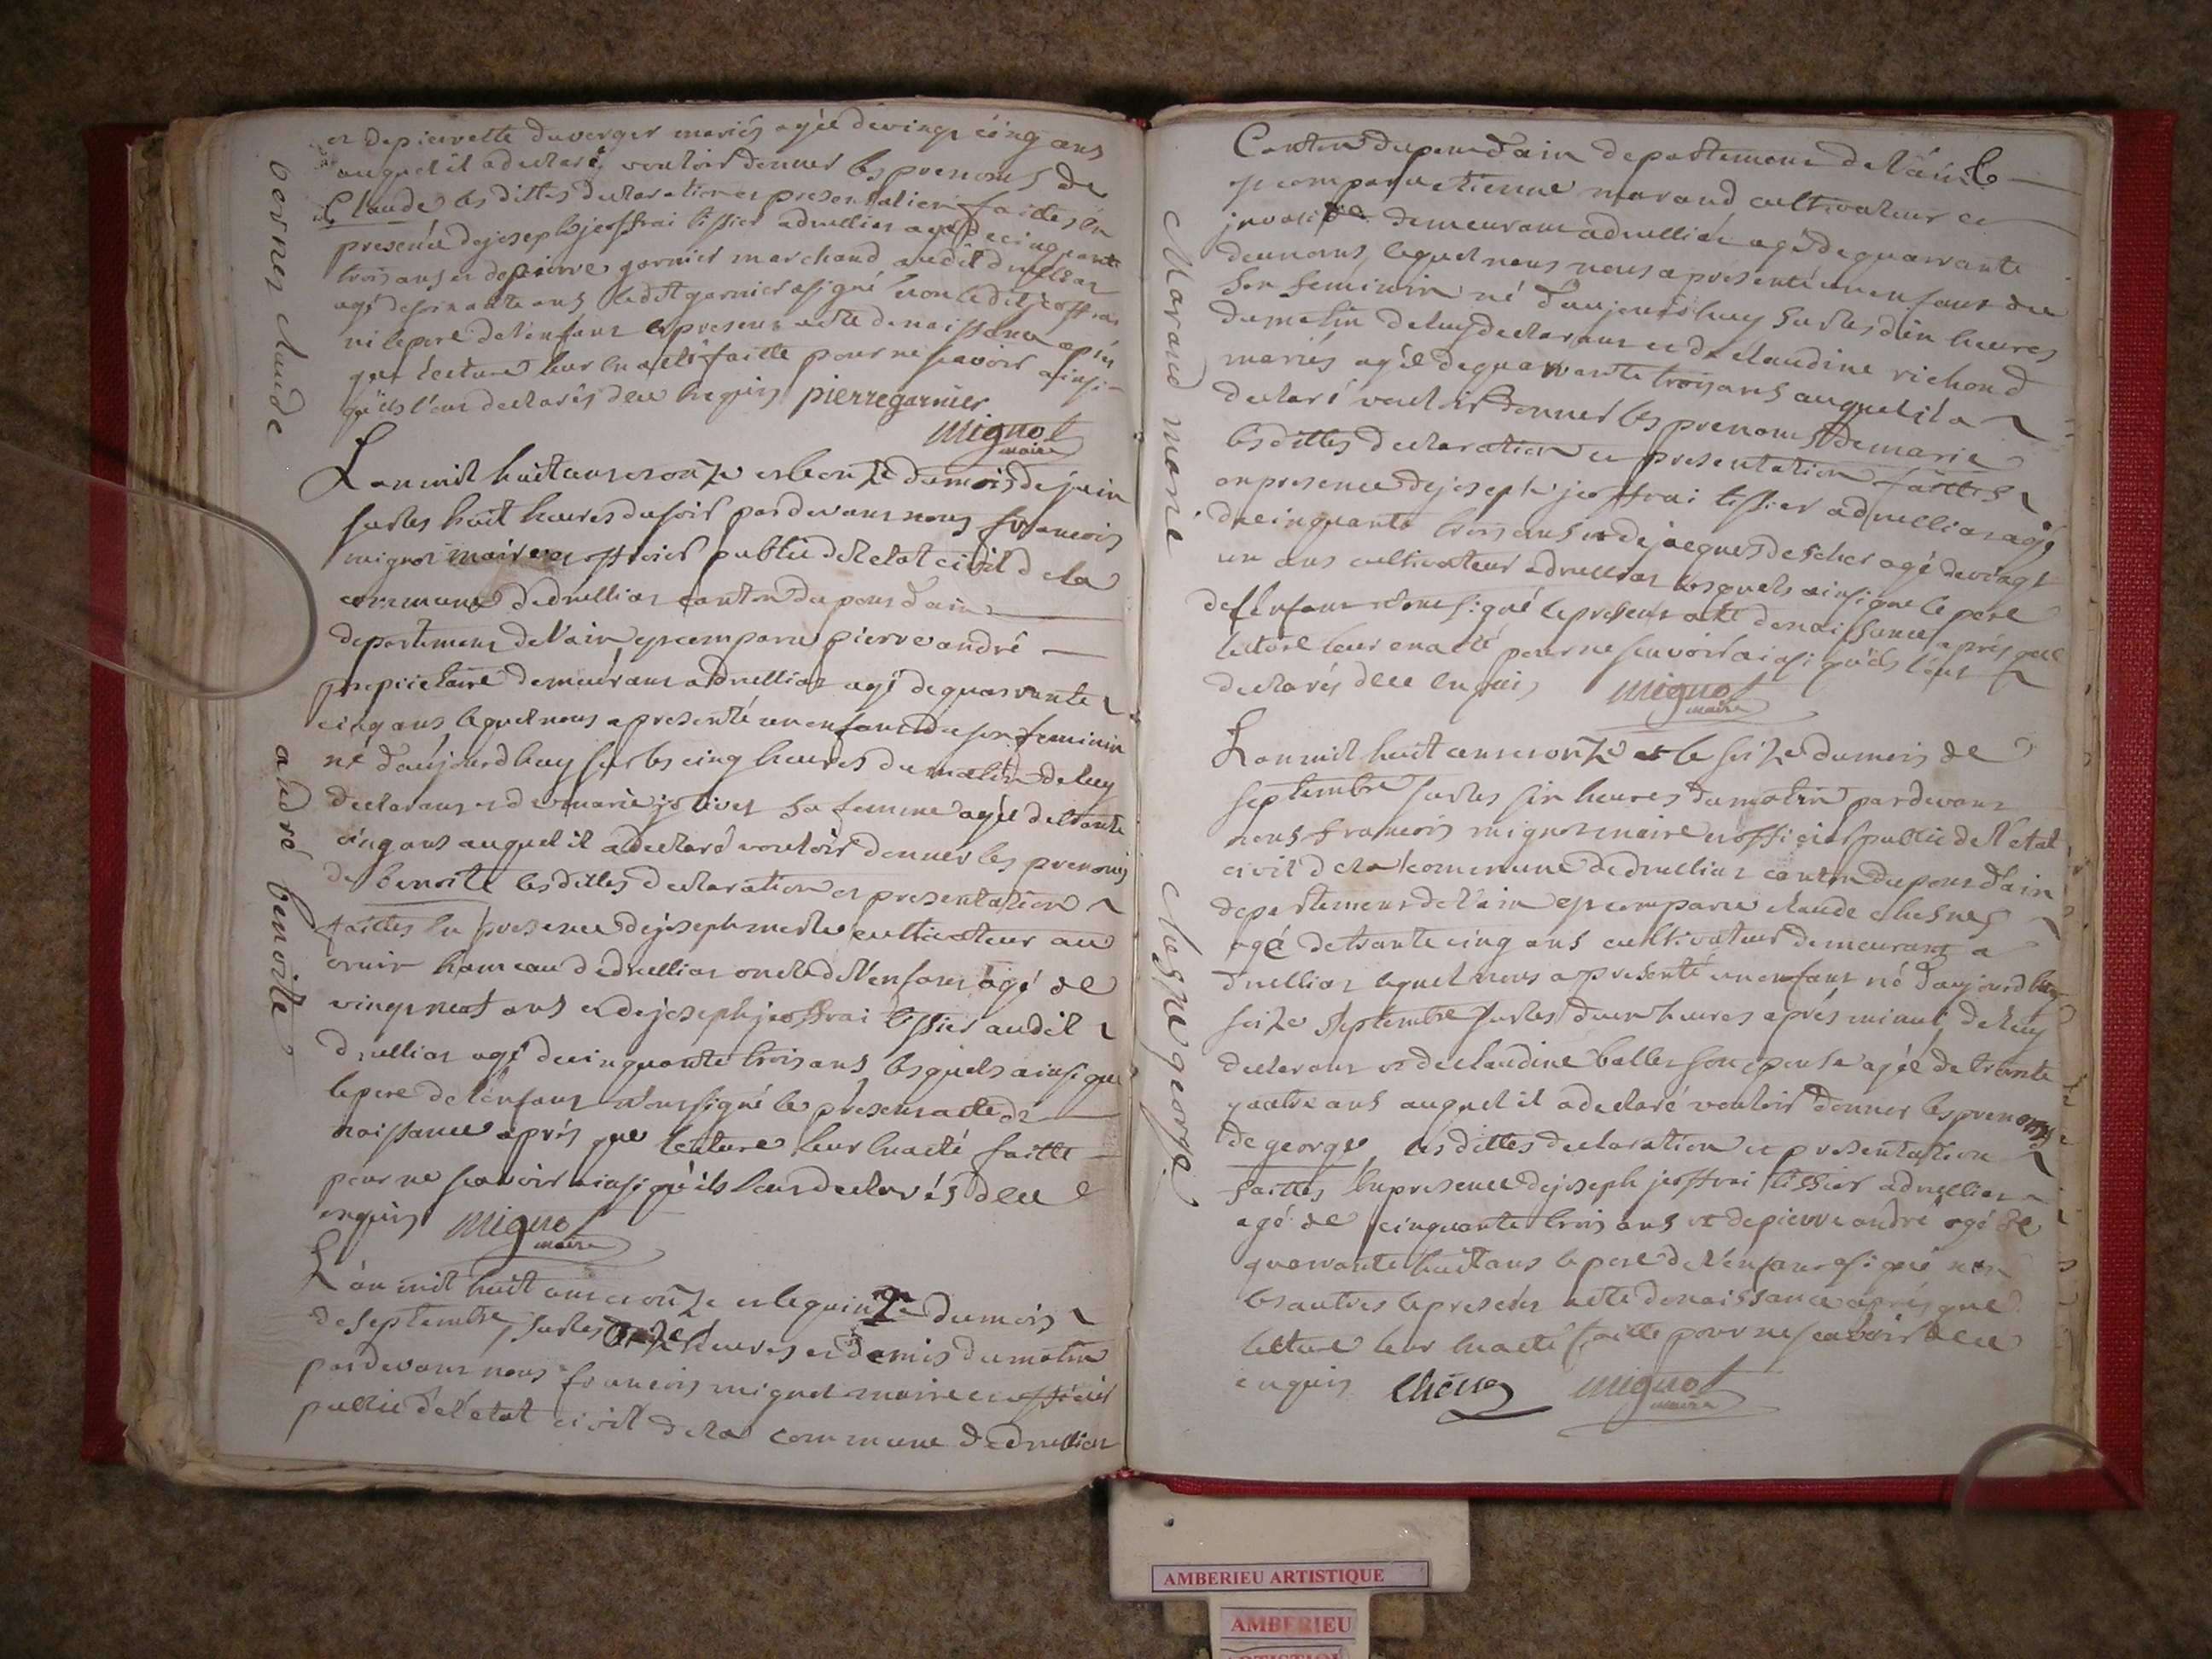 et de pierrette duverger mariés agée de vingt cinq ans
auquel il a declaré vouloir donner les prenoms de
Claude les dittes declaration et presentation faittes en
presence de joseph jeoffrai tissier a druillias agé de cinquante
trois ans et de pierre garnier marchand audit druillias
agé de soixante ans ledit garnier a signé non ledit jeoffrai
ni le pere de l'enfant le present acte de naissance apres
que lecture leur en a été faitte pour ne scavoir ainsi
qu'ils l'ont declarés de ce enquis pierre garnier
mignot
maire
borner claude
L'an mil huit cent et onze et le onze du mois de juin
sur les huit heures du soir par devant nous francois
mignot maire et officier public de l'etat civil de la
commune de druillias canton du pont d'ain
departement de l'ain est comparu pierre andré
propriétaire demeurant a druillias agé de quarante
cinq ans lequel nous a presenté un enfant du sex feminin
né d'aujourd huy sur les cinq heures du matin de luy
declarant et de marie jolivet sa femme agée de trante
cinq ans auquel il a declaré vouloir donner les prenoms
de benoite les dittes declaration et presentation
faittes en presence de joseph merle cultivateur au
hameau de druillias oncle de l'enfant agé de
vingt neuf ans et de joseph jeoffrai tissier audit
druillias agé de cinquante trois ans lesquels ainsi que
le pere de l'enfant n'ont signé le présent acte de
naissance après que lecture leur en a eté faitte
pour ne scavoir ainsi qu'ils l'ont declarés de ce
enquis mignot
maire
andré benoitte
L'an mil huit cent et onze et le quinze du mois
de septembre sur les onze heures et demis du matin
par devant nous francois mignot maire et officier
public de l'etat civil de la commune de druillias
Canton du pont d'ain departement de l'ain
est comparu etienne marand cultivateur et
demeurant a druillias agé de quarante
deux ans lequel nous nous a presenté un enfant du
sex feminin né d'aujourd'huy sur les dix heures
du matin de luy declarant et de claudine richond
mariés agée de quarante trois ans auquel il a
declaré vouloir donner les prenoms de marie
les dittes declaration et presentation faittes
en presence de joseph jeoffrai tissier a druillias agé
de cinquante trois ans et de jacques descher agé de vingt
un ans cultivateur a druillias lesquels ainsi que le pere
de l'enfant n'ont signé le present acte de naissance après que
lecture leur en a eté pour ne scavoir ainsi qu'ils l'ont
declarés de ce enquis mignot
maire
Marand marie
L'an mil huit cent et onze et le seize du mois de
septembre sur les six heures du matin par devant
nous francois mignot maire et officier public de l'etat
civil de la commune de druillias canton du pont d'ain
departement de l'ain est comparu claude chesne
agé de trante cinq ans cultivateur demeurant a
druillias lequel nous a presenté un enfant né d'aujourd huy
seize septembre sur les deux heures après minuit de luy
declarant et de claudine ballet son epouse agée de trante
quatre ans auquel il a declaré vouloir donner les prenoms
de george les dittes declaration et presentation
faittes en presence de joseph jeoffrai tissier a druillias
agé de cinquante trois ans et de pierre andré agé de
quarante huit ans le pere de l'enfant a signé non
les autres le present acte de naissance après que
lecture leur en a eté faitte pour ne scavoir de ce
enquis Chêne mignot
maire
chesne george
AMBERIEU ARTISTIQUE
AMBERIEU
ARTISTIQUE